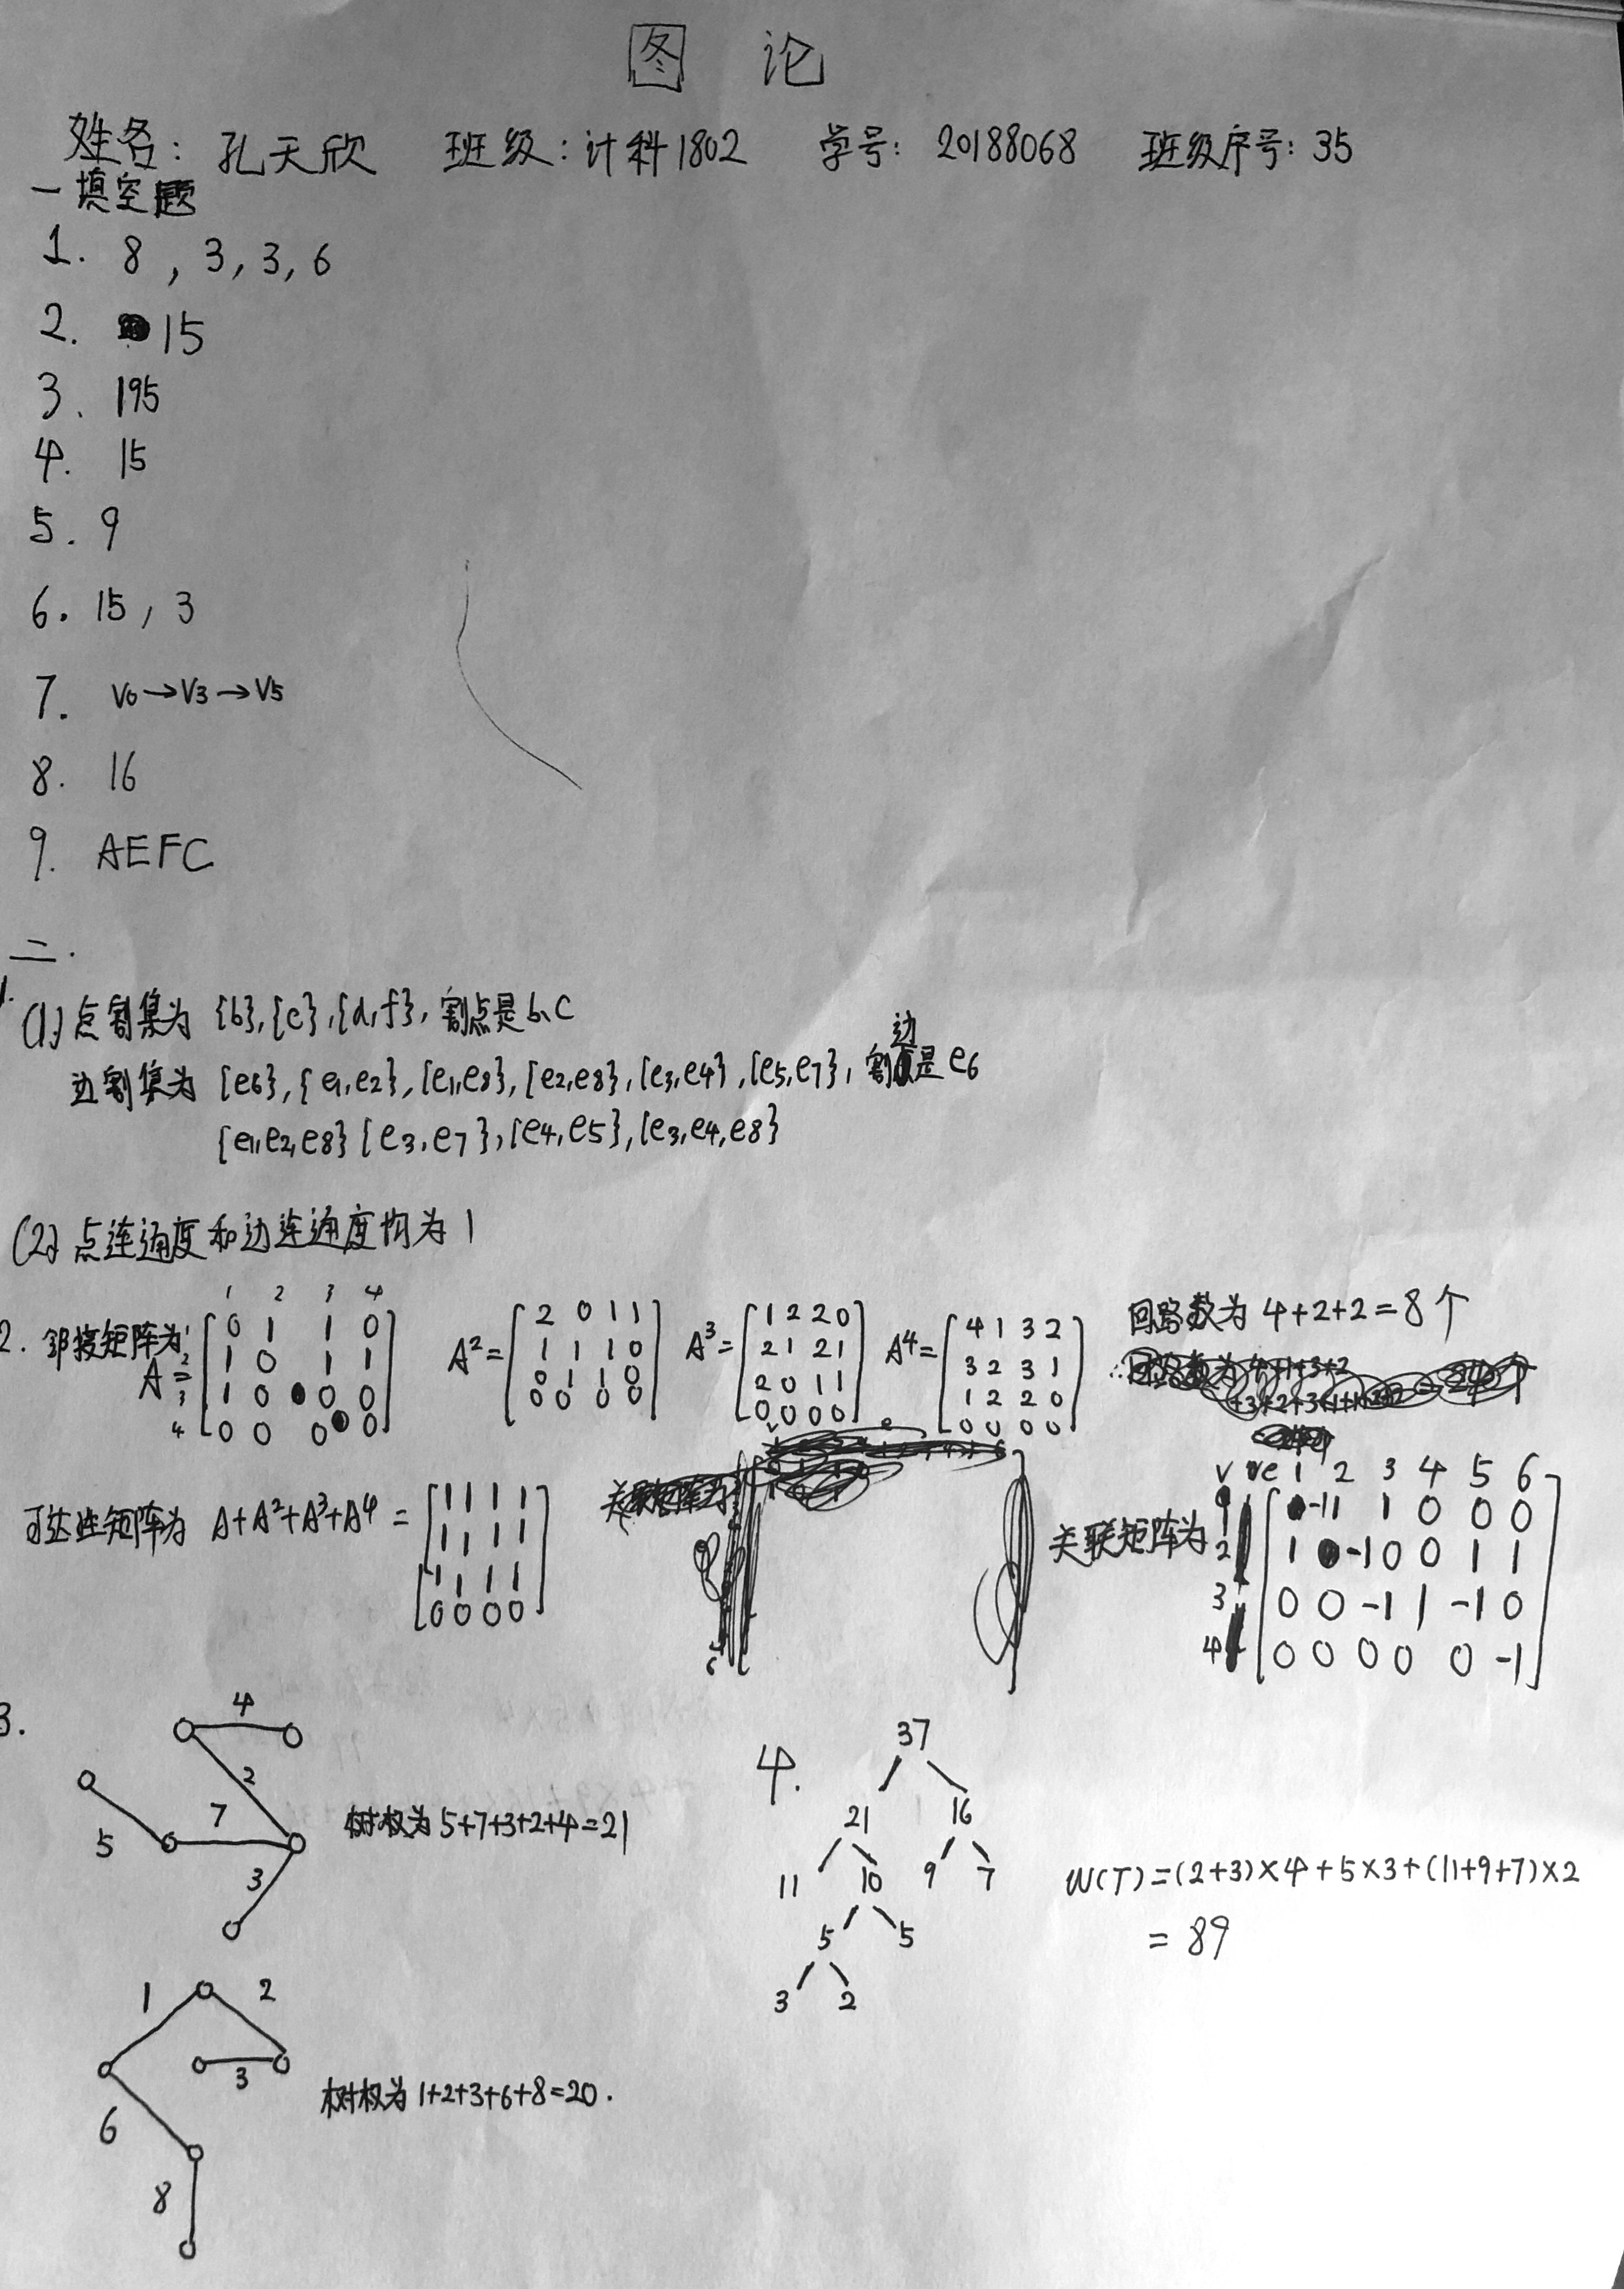 图 论
姓名: 孔天欣 班级: 计科1802 学号: 20188068 班级序号: 35
一 填空题
1. 8, 3, 3, 6
2. 15
3. 195
4. 15
5. 9
6. 15, 3
7. V0→V3→V5
8. 16
9. AEFC
二.
1.
(1) 点割集为 {b},{c},{d,f}, 割点是b、c
边割集为 {e6},{e1,e2},{e1,e8},{e2,e8},{e3,e4},{e5,e7}, 割边是e6
{e1,e2,e8} {e3,e7},{e4,e5},{e3,e4,e8}
(2) 点连通度和边连通度均为1
1 2 3 4
2. 邻接矩阵为
A=
1 0 1 1 0
2 1 0 1 1
3 1 0 0 0
4 0 0 0 0
A²=
2 0 1 1
1 1 1 0
0 1 1 0
0 0 0 0
A³=
1 2 2 0
2 1 2 1
2 0 1 1
0 0 0 0
A⁴=
4 1 3 2
3 2 3 1
1 2 2 0
0 0 0 0
回路数为 4+2+2=8个
可达性矩阵为 A+A²+A³+A⁴ =
1 1 1 1
1 1 1 1
1 1 1 1
0 0 0 0
关联矩阵为
v e 1 2 3 4 5 6
1 -1 1 1 0 0 0
2 1 -1 0 0 1 1
3 0 0 -1 1 -1 0
4 0 0 0 0 0 -1
3.
4
2
7
5
3
树权为 5+7+3+2+4=21
1 2
3
6
8
树权为 1+2+3+6+8=20.
4.
37
21 16
11 10 9 7
5 5
3 2
W(T)=(2+3)×4+5×3+(11+9+7)×2
= 89